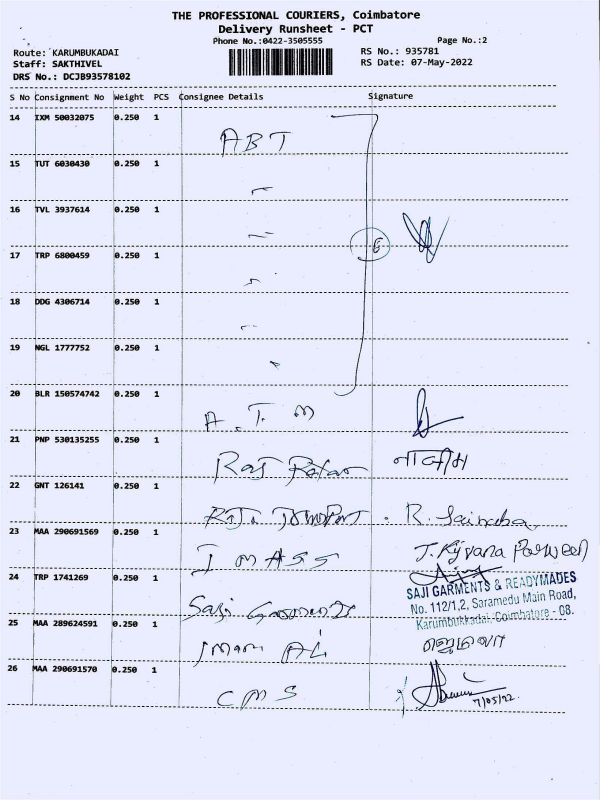 THE PROFESSIONAL COURIERS, Coimbatore
Delivery Runsheet - PCT
Phone No.:0422-3505555
Page No.:2
Route: KARUMBUKADAI
RS No.: 935781
Staff: SAKTHIVEL
RS Date: 07-May-2022
DRS No.: DCJB93578102
S No Consignment No Weight PCS Consignee Details Signature
14 IXM 50032075 0.250 1
ABT
15 TUT 6030430 0.250 1
16 TVL 3937614 0.250 1
6
17 TRP 6800459 0.250 1
18 DDG 4306714 0.250 1
19 NGL 1777752 0.250 1
20 BLR 150574742 0.250 1
A.T.M
21 PNP 530135255 0.250 1
Raj
22 GNT 126141 0.250 1
R.
23 MAA 290691569 0.250 1
IMASS
J.
24 TRP 1741269 0.250 1
SAJI GARMENTS & READYMADES
No. 112/1,2, Saramedu Main Road,
Karumbukkadai, Coimbatore - 08.
Saji
25 MAA 289624591 0.250 1
Imam Ali
26 MAA 290691570 0.250 1
CMS
7/05/22.